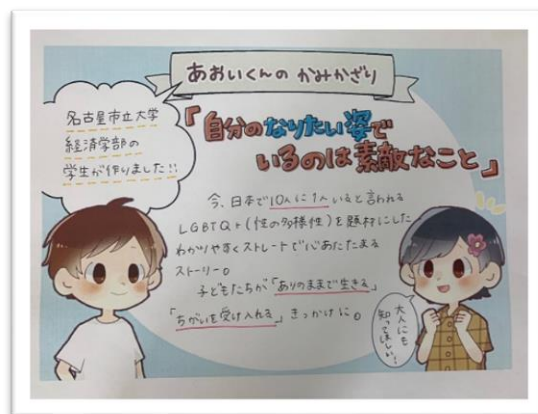 あおいくんの かみかざり
名古屋市立大学
経済学部の
学生が作りました!!
「自分のなりたい姿で
いるのは素敵なこと」
今、日本で10人に1人いると言われる
LGBTQ+(性の多様性)を題材にした
わかりやすくストレートで心あたたまる
ストーリー。
子どもたちが「ありのままで生きる」
「ちがいを受け入れる」きっかけに。
大人にも
知ってほしい!